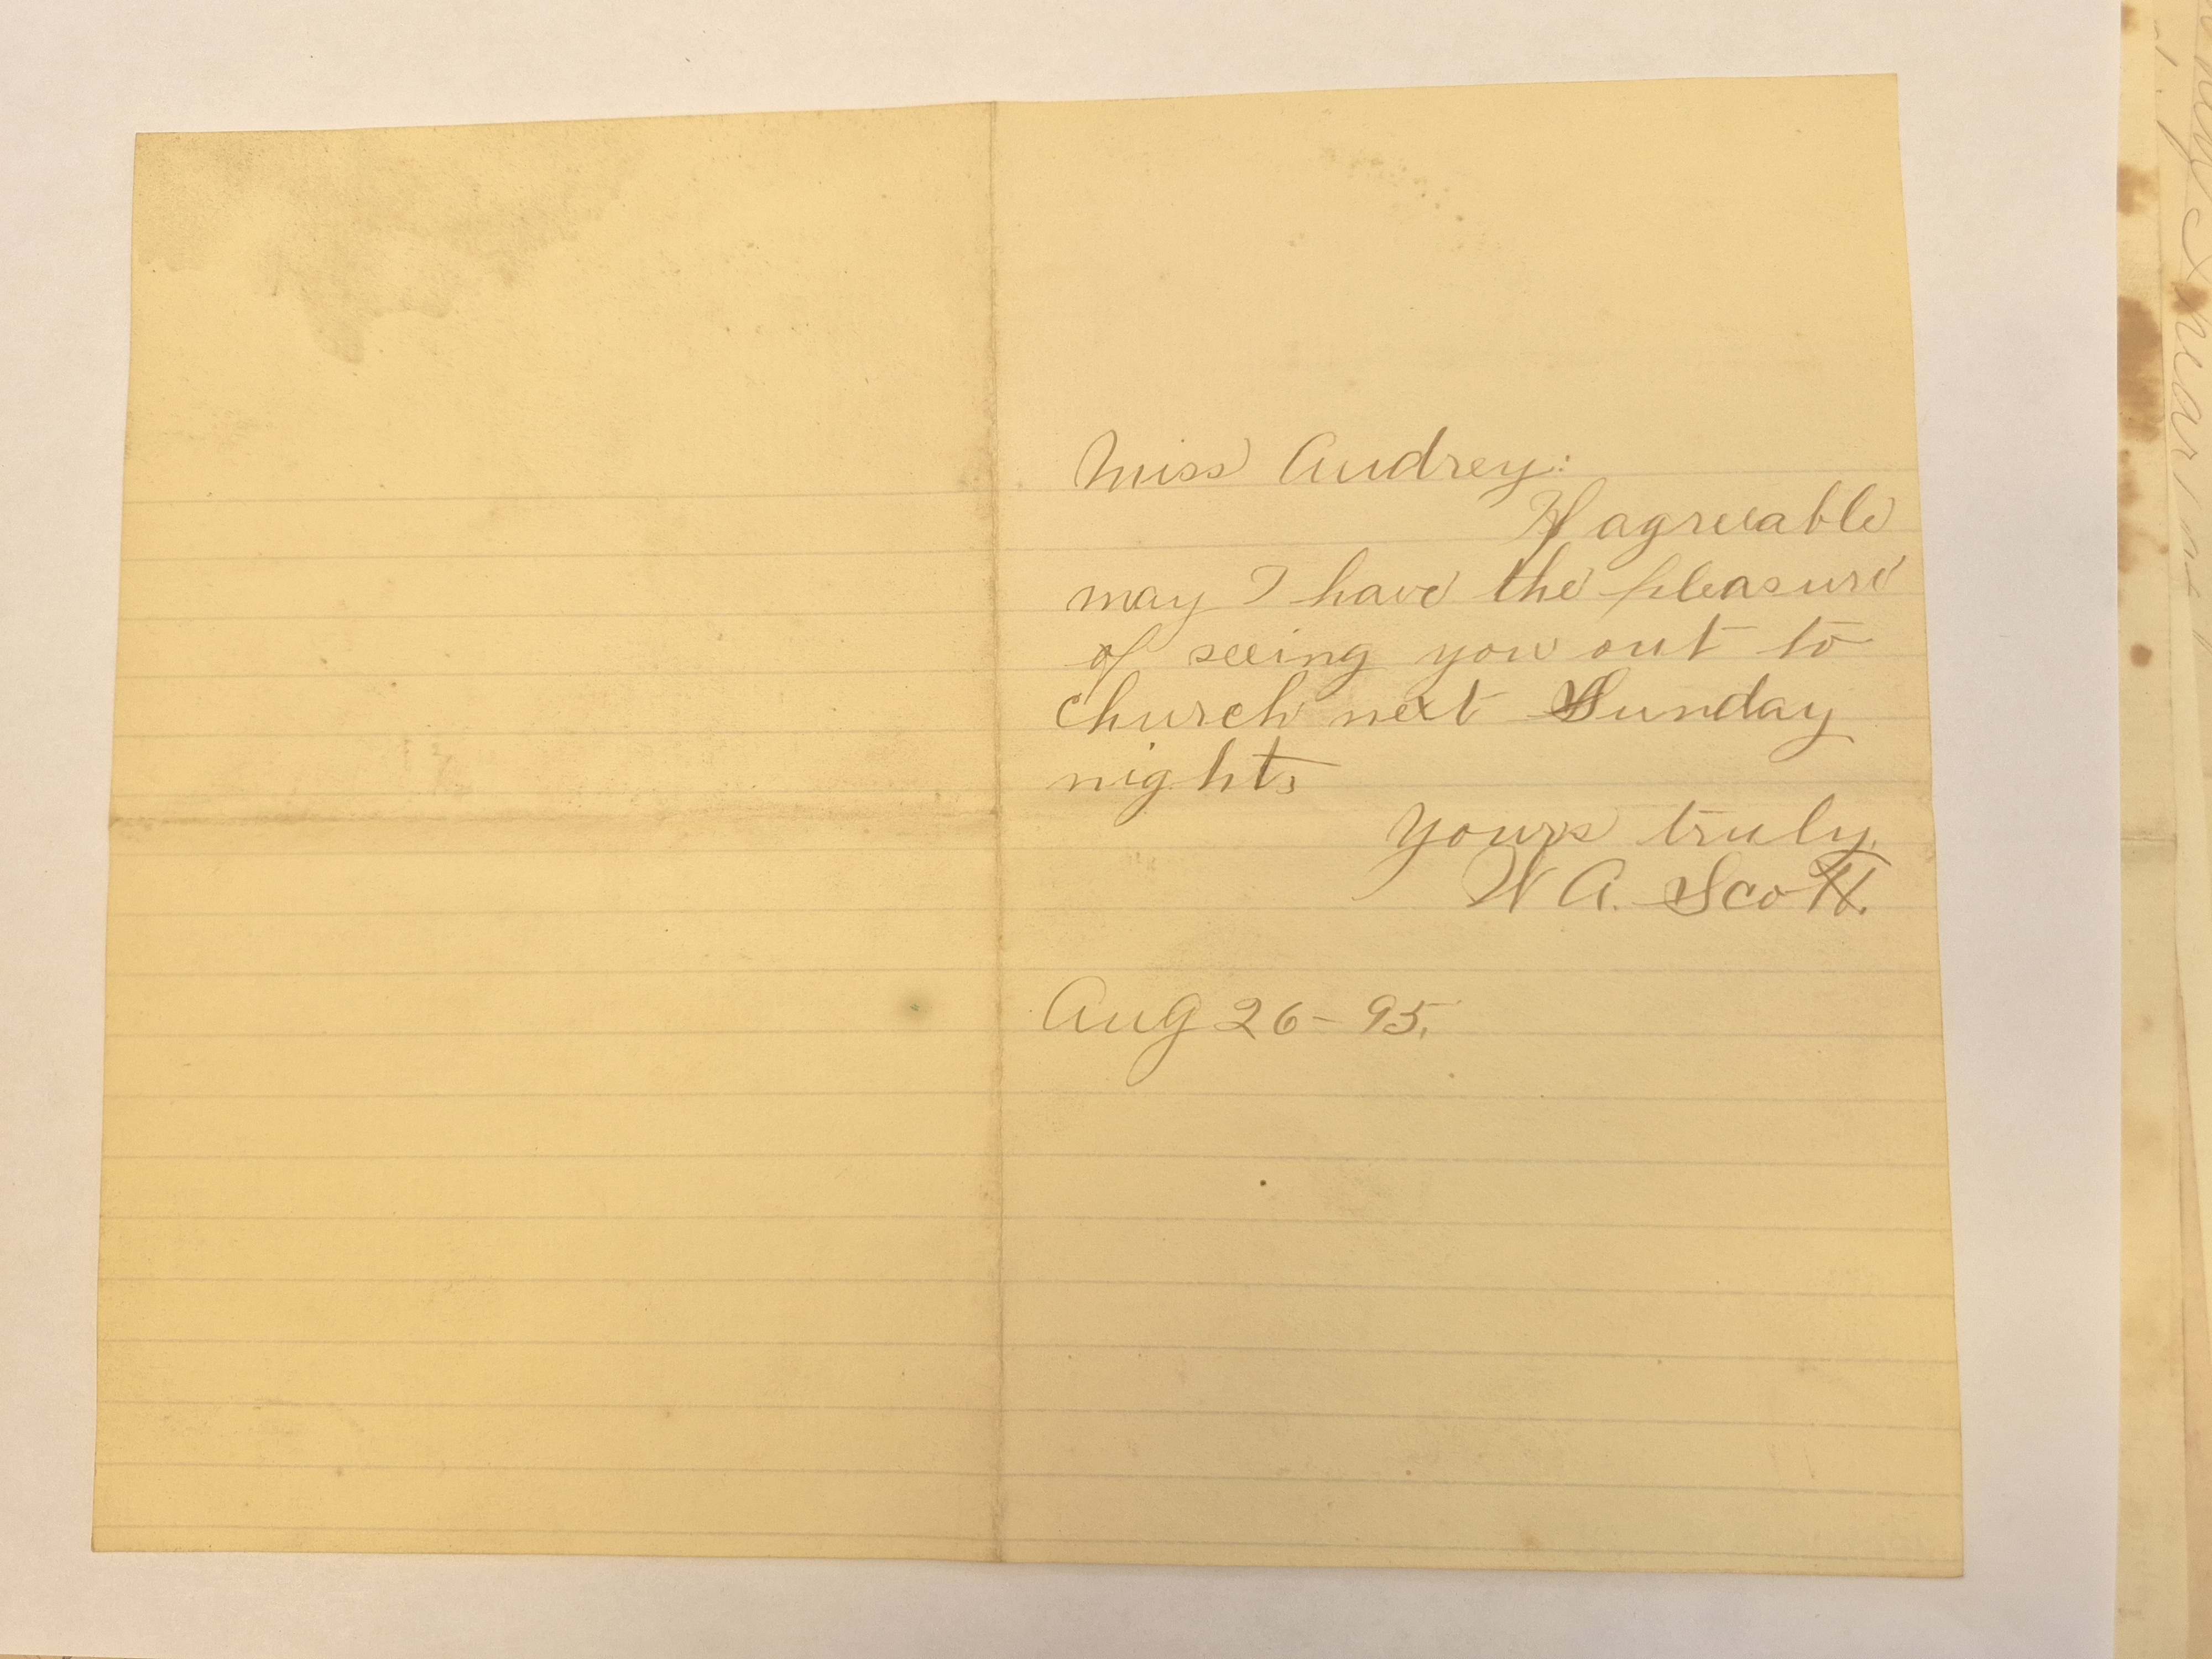 Miss Audrey:
If agreeable
may I have the pleasure
of seeing you out to
church next Sunday
night,
Yours truly,
W A. Scott.
Aug 26 - 95.